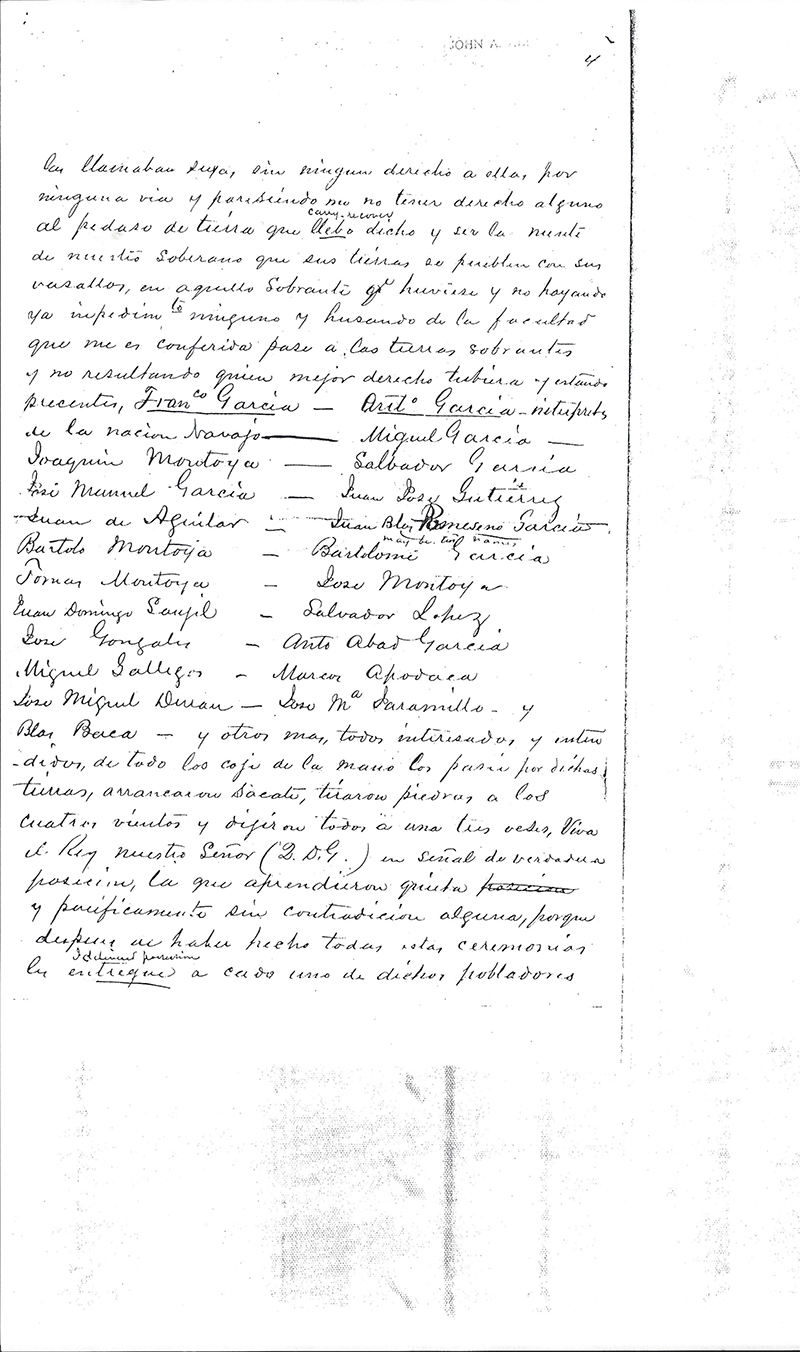 JOHN A.
4
las llamaban suya, sin ningun derecho a ellas, por
ninguna via y paresiendo me no tener derecho alguno
carry-recover
al pedaso de tierra que llebo dicho y ser la mente
de nuestro Soberano que sus tierras se pueblen con sus
vasallos, en aquello Sobrante qe huviese y no hayando
ya impedimto ninguno y husando de la facultad
que me es conferida pase a las tierras sobrantes
y no resultando quien mejor derecho tubiera y estando
presentes, Franco Garcia — Anto Garcia - interpretes
de la nacion Navajo — Miguel Garcia —
Joaquin Montoya — Salvador Garcia
José Manuel Garcia — Juan Jose Gutiérrez
Juan de Aguilar — Juan Blas Garcia
may be two names
Bartolo Montoya — Bartolomé Garcia
Tomas Montoya — Jose Montoya
Juan Domingo — Salvador Lopez
Jose Gonzales — Anto Abad Garcia
Miguel Gallegos — Marcos Apodaca
Jose Miguel Duran — Jose Ma Jaramillo - y
Blas Baca — y otros mas, todos interesados y enten
-didos, de todo los coji de la mano los pasié por dichas
tierras, arrancaron sacate, tiraron piedras a los
cuatro vientos y dijiron todos a una tres veses, Viva
el Rey nuestro Señor (Q.D.G.) en señal de verdadera
posicion, la que aprendieron quieta posicion
y pacificamente sin contradicion alguna, porque
despues de haber hecho todas estas ceremonias
I delivered possession
les entregue a cado uno de dichos pobladores